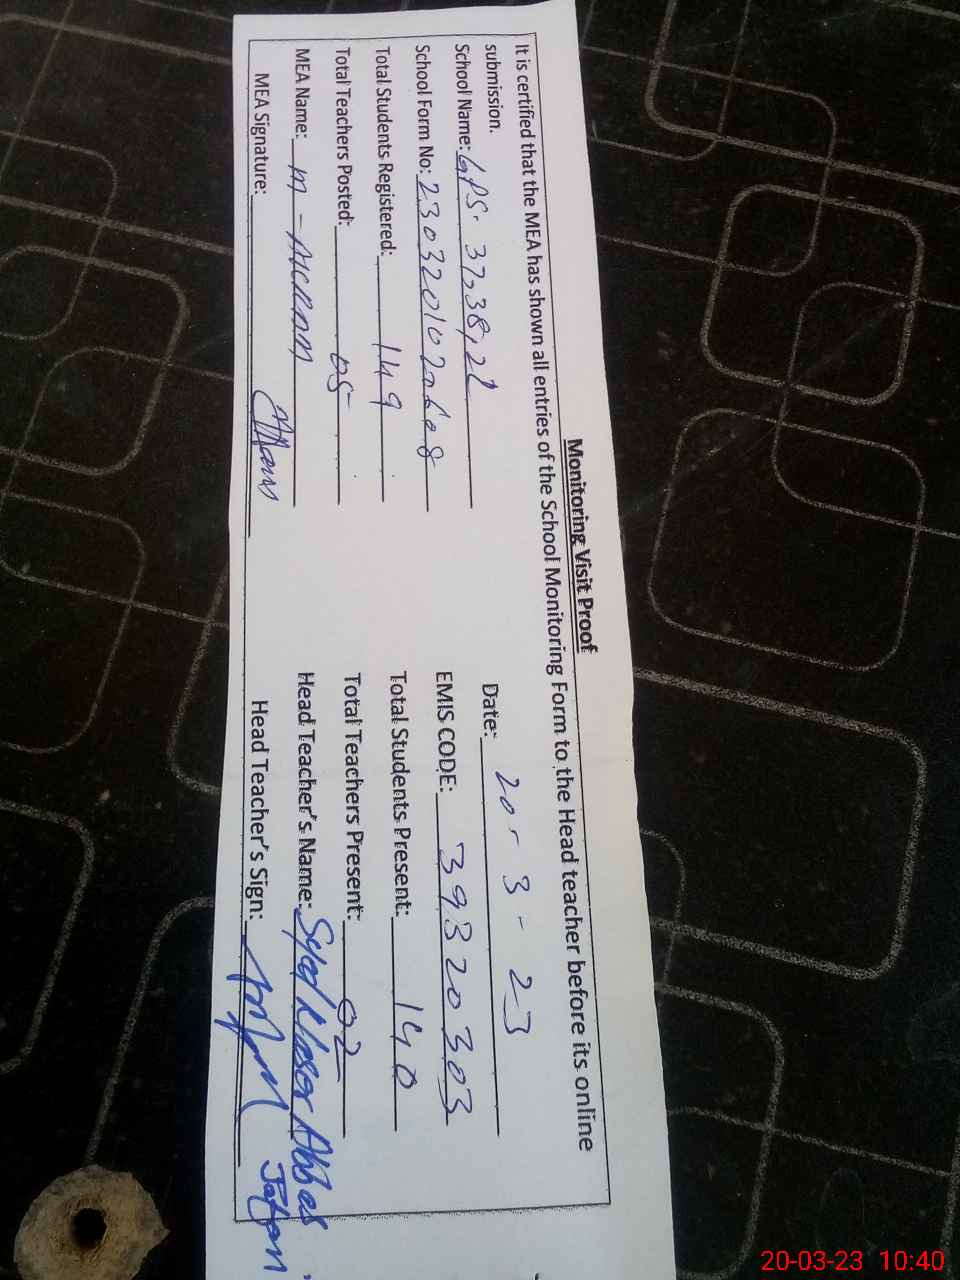 Monitoring Visit Proof
It is certified that the MEA has shown all entries of the School Monitoring Form to the Head teacher before its online
submission.
Date: 20-3-23
School Name: GPS. 37,38,2L
EMIS CODE: 39320303
School Form No: 230320102
Total Students Registered: 149
Total Students Present: 140
Total Teachers Posted: 05
Total Teachers Present: 02
MEA Name: M-AKRAM
Head Teacher's Name: Syed Nasar Abbas
MEA Signature:
Head Teacher's Sign:
20-03-23 10:40